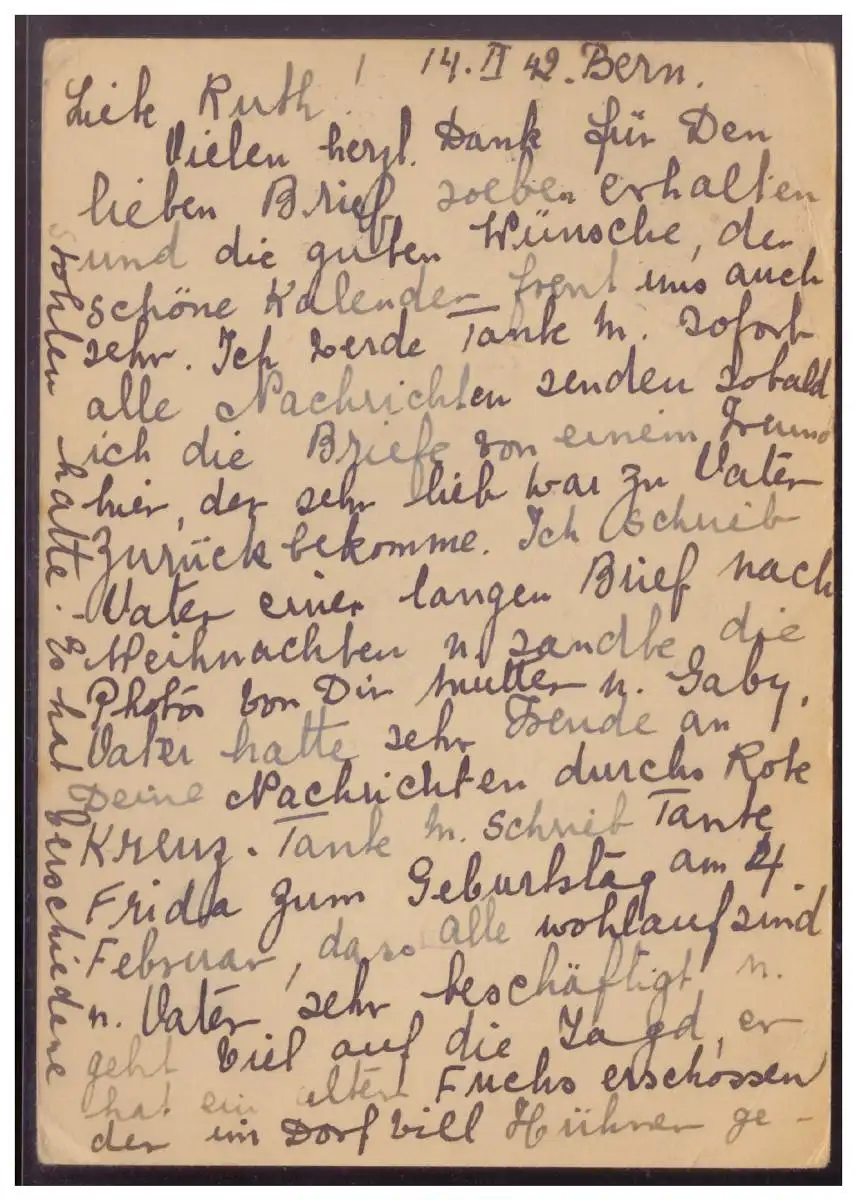 14. II 42. Bern.
Liebe Ruth!
Vielen herzl. Dank für Den
lieben Brief soeben erhalten
und die guten Wünsche, der
schöne Kalender freut uns auch
sehr. Ich werde Tante M. sofort
alle Nachrichten senden sobald
ich die Briefe von einem Freund
hier, der sehr lieb war zu Vater
zurückbekomme. Ich schrieb
Vater einen langen Brief nach
Weihnachten u. sandte die
Photos von Dir Mutter u. Gaby,
Vater hatte sehr Freude an
Deine Nachrichten durchs Rote
Kreuz. Tante M. schrieb Tante
Frida zum Geburtstag am 4.
Februar, dass alle wohlauf sind
u. Vater sehr beschäftigt u.
geht viel auf die Jagd, er
hat ein alter Fuchs erschossen
der im Dorf vill Hühner ge-
stohlen hatte. Es hat verschiedene